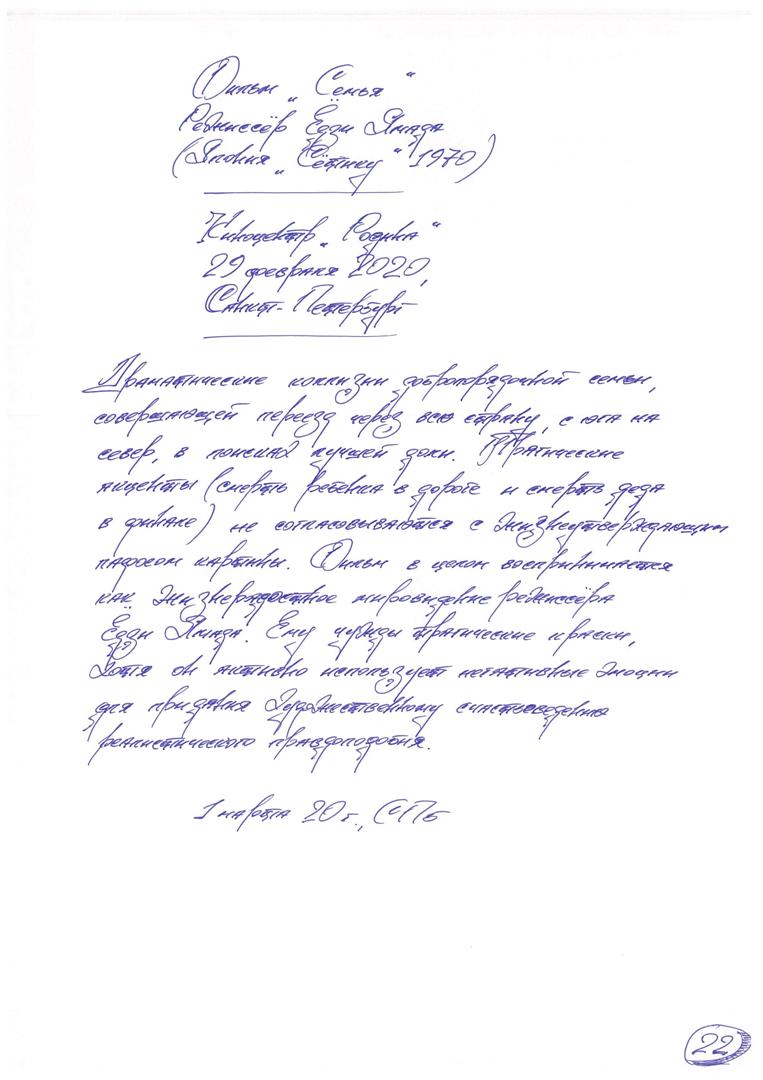 Фильм „Семья“
Режиссёр Ёдзи Ямада
(Япония „Сётику“ 1970)
Киноцентр „Родина“
29 февраля 2020,
Санкт-Петербург
Драматические коллизии добропорядочной семьи,
совершающей переезд через всю страну, с юга на
север, в поисках лучшей доли. Трагические
акценты (смерть ребёнка в дороге и смерть деда
в финале) не согласовываются с жизнеутверждающим
пафосом картины. Фильм в целом воспринимается
как жизнерадостное мировидение режиссёра
Ёдзи Ямада. Ему чужды трагические краски,
хотя он активно использует негативные эмоции
для придания художественному счастьеведению
реалистического правдоподобия.
1 марта 20 г., СПб
22